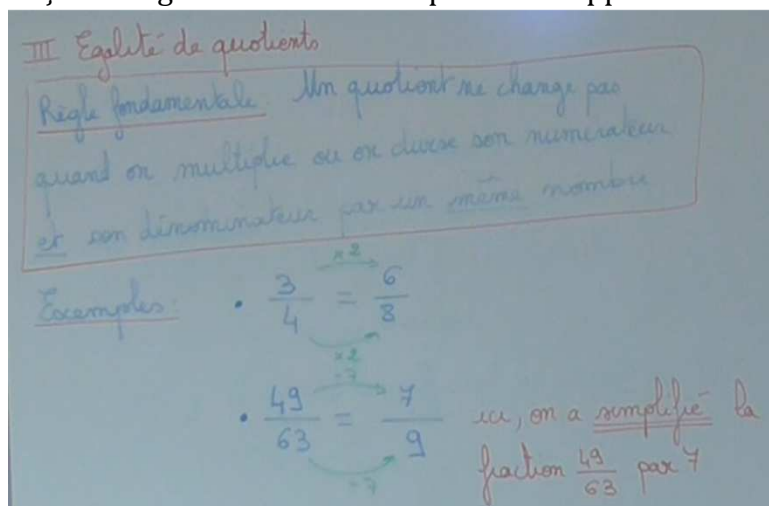 III Egalité de quotients
Règle fondamentale : Un quotient ne change pas
quand on multiplie ou on divise son numérateur
et son dénominateur par un même nombre
Exemples :
×2
• 3/4 = 6/8
×2
÷7
• 49/63 = 7/9
÷7
ici, on a simplifié la
fraction 49/63 par 7